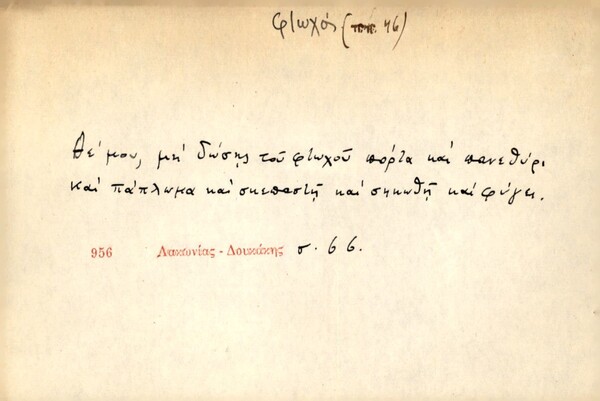 φτωχός ( 46)
Θε' μου, μη' δώσης του φτωχού πόρτα και πανεθύρι
και πάπλωμα και σκεπαστή και σηκωθή και φύγει.
956 Λακωνίας - Δουκάκης σ. 66.